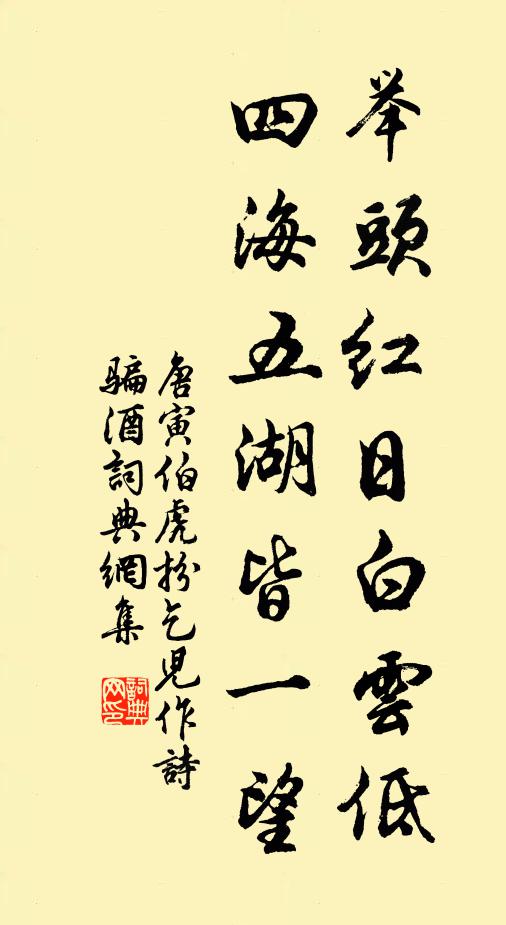 举頭紅日白雲低
四海五湖皆一望
唐寅伯虎扮乞児作詩
騙酒詞典網集
詞典
网印